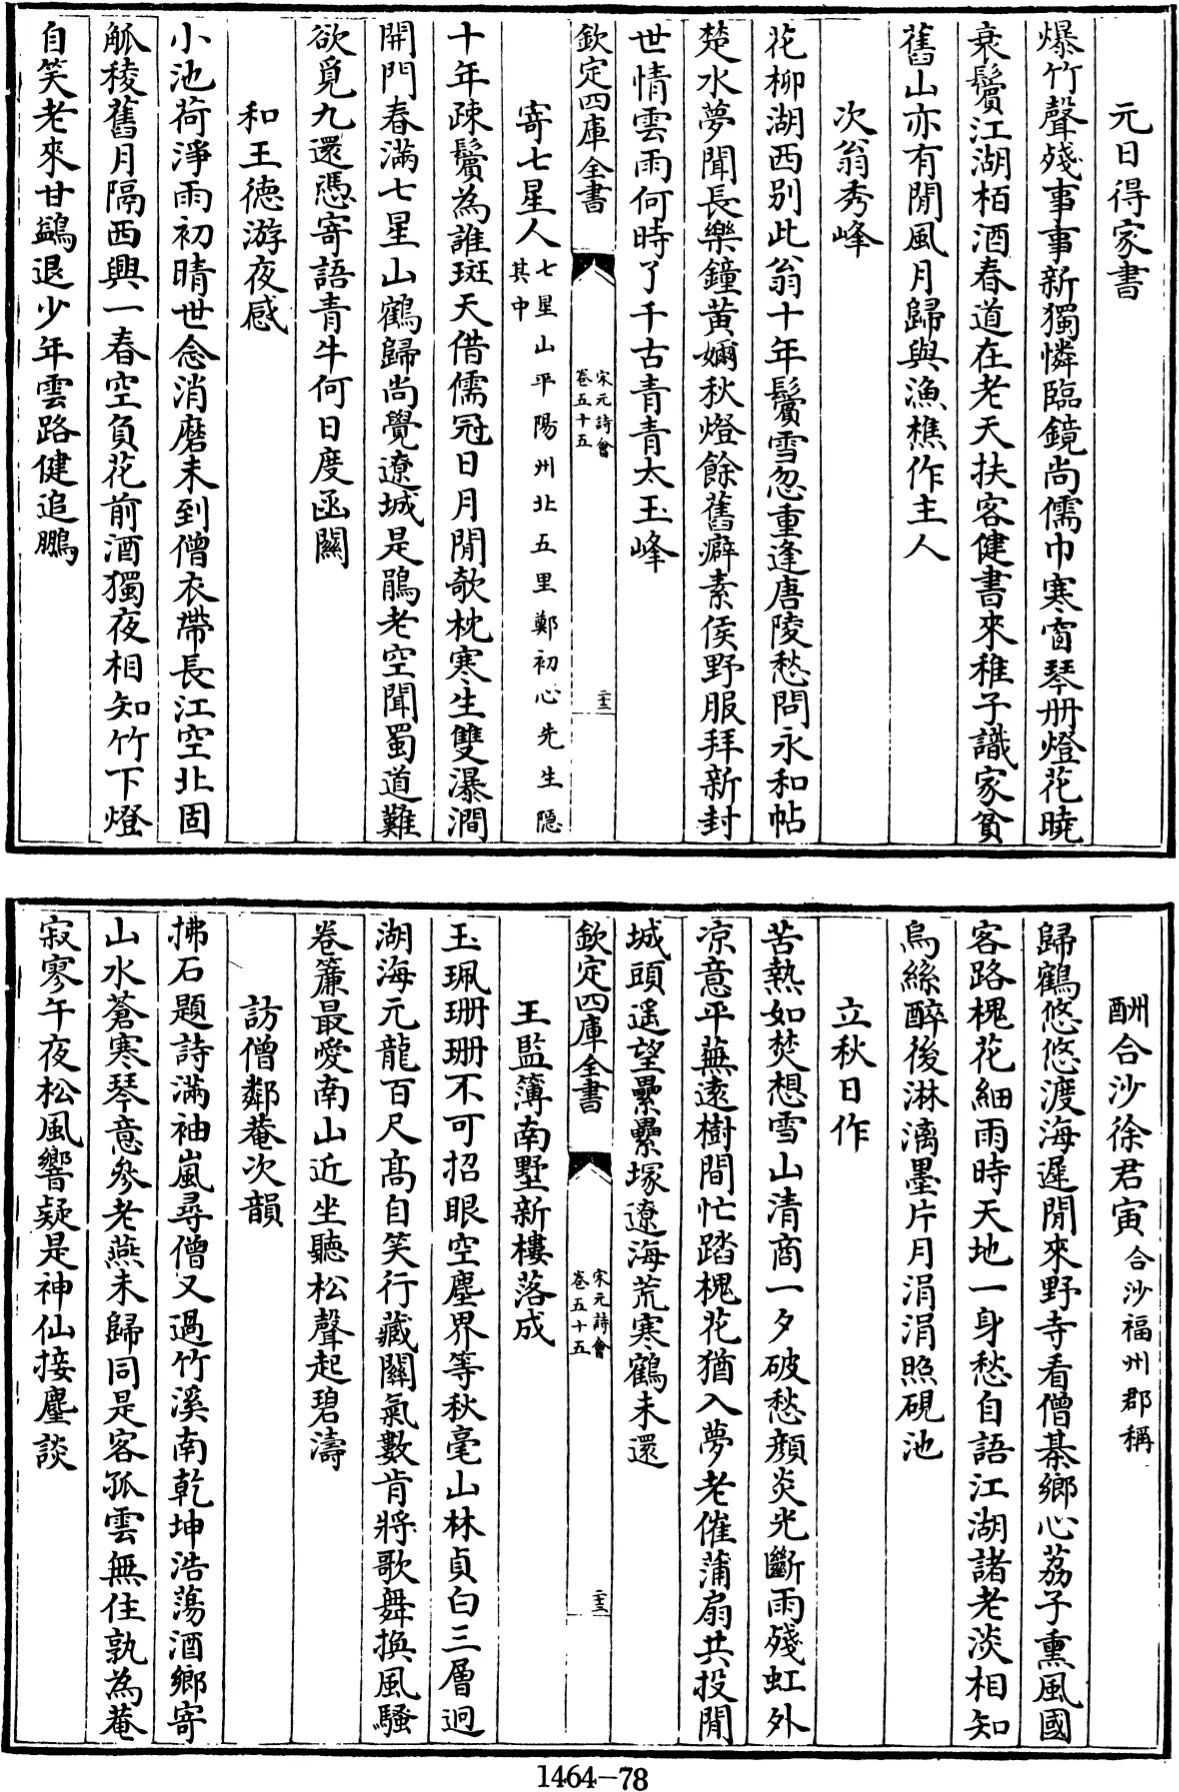 元日得家書
爆竹聲殘事事新獨憐臨鏡尚儒巾寒窗琴册燈花曉
衰鬢江湖栢酒春道在老天扶客健書來稚子識家貧
舊山亦有閒風月歸與漁樵作主人
次翁秀峰
花柳湖西别此翁十年鬢雪忽重逢唐陵愁問永和帖
楚水夢聞長樂鐘黄嬭秋燈餘舊癖素侯野服拜新封
世情雲雨何時了千古青青太玉峰
欽定四庫全書
宋元詩會
卷五十五
二十三
寄七星人七星山平陽州北五里鄭初心先生隱
其中
十年疎鬢為誰斑天借儒冠日月閒欹枕寒生雙瀑澗
開門春滿七星山鶴歸尚覺遼城是鵑老空聞蜀道難
欲覓九還憑寄語青牛何日度函關
和王德游夜感
小池荷淨雨初晴世念消磨未到僧衣帶長江空北固
觚稜舊月隔西興一春空負花前酒獨夜相知竹下燈
自笑老來甘鷁退少年雲路健追鵬
酬合沙徐君寅合沙福州郡稱
歸鶴悠悠渡海遲閒來野寺看僧棊鄉心荔子熏風國
客路槐花細雨時天地一身愁自語江湖諸老淡相知
烏絲醉後淋漓墨片月涓涓照硯池
立秋日作
苦熱如焚想雪山清商一夕破愁顔炎光斷雨殘虹外
凉意平蕪遠樹間忙踏槐花猶入夢老催蒲扇共投閒
城頭遥望纍纍塚遼海荒寒鶴未還
欽定四庫全書
宋元詩會
卷五十五
二十三
王監簿南墅新樓落成
玉珮珊珊不可招眼空塵界等秋毫山林貞白三層迥
湖海元龍百尺髙自笑行藏關氣數肯將歌舞換風騷
卷簾最愛南山近坐聽松聲起碧濤
訪僧鄰菴次韻
拂石題詩滿袖嵐尋僧又過竹溪南乾坤浩蕩酒鄉寄
山水蒼寒琴意參老燕未歸同是客孤雲無住孰為菴
寂寥午夜松風響疑是神仙接麈談
1464—78